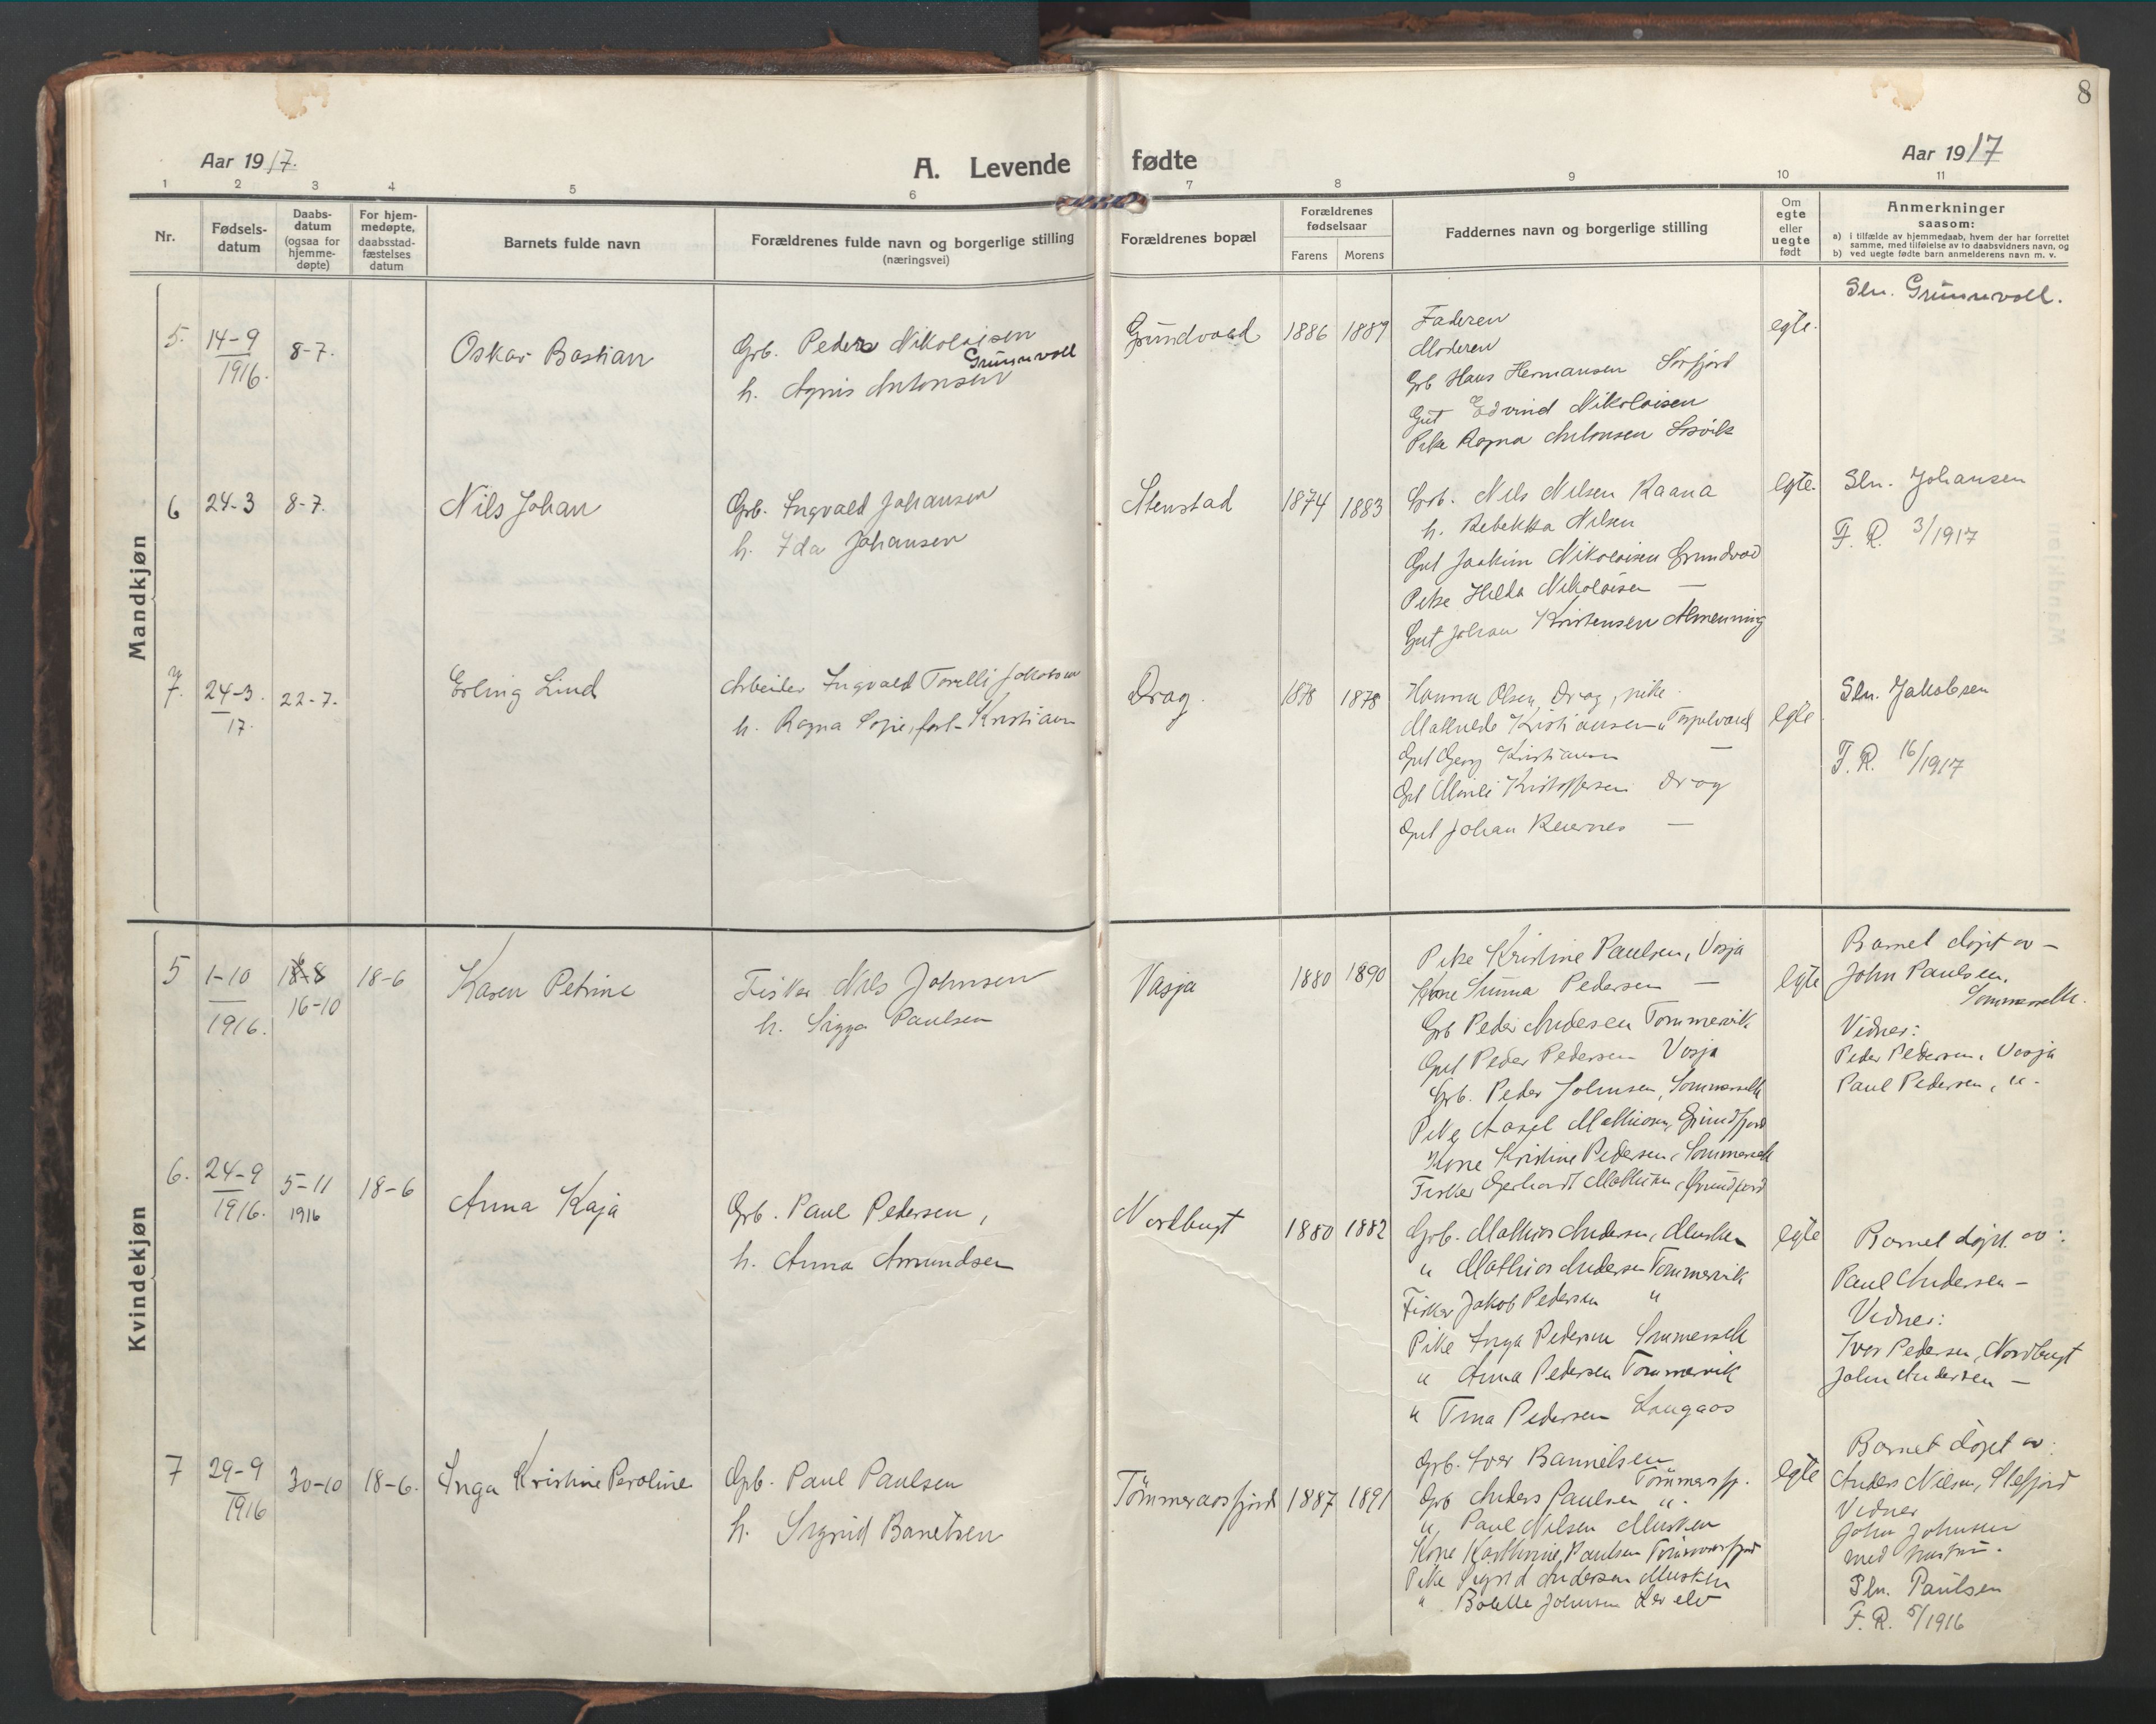 8
Aar 1917.
A. Levende fødte
Aar 1917
1 2 3 4 5 6 7 8 9 10 11
Nr.
Fødsels-
datum
Daabs-
datum
(ogsaa for
hjemme-
døpte)
For hjem-
medøpte,
daabsstad-
fæstelses
datum
Barnets fulde navn
Forældrenes fulde navn og borgerlige stilling
(næringsvei)
Forældrenes bopæl
Forældrenes
fødselsaar
Farens Morens
Faddernes navn og borgerlige stilling
Om
egte
eller
uegte
født
Anmerkninger
saasom:
a) i tilfælde av hjemmedaab, hvem der har forrettet
samme, med tilføielse av to daabsvidners navn, og
b) ved uegte fødte barn anmelderens navn m. v.
Mandkjøn
5. 14-9
1916.
8-7.
Oskar Bastian
Grb. Peder Nikolaisen
Grünnvoll
h. Agnis Antonsen
Grundvaad
1886 1889
Faderen
Moderen
Grb Hans Hermansen Sørfjord
Gut Edvind Nikolaisen
Pike Ragna Antonsen
egte.
Sln. Grünnvoll.
6 24-3 8-7.
Nils Johan
Grb. Ingvald Johansen
h. Ida Johansen
Stenstad
1874 1883
Grb. Nils Nilsen Raana
h. Rebekka Nilsen
Gut Joakim Nikolaisen Grundvad
Pike Hilda Nikolaisen —
Gut Johan Kristensen Almenning
egte.
Sln. Johansen
F. R. 3/1917
7. 24-3.
17.
22-7.
Erling Lind
Arbeider Ingvald Torelli Jakobsen
h. Ragna Sofie, født Kristiansen
Drag.
1878 1878
Hanna Olsen, Drag, pike.
Mathilde Kristiansen
Gut Georg Kristiansen —
Gut Kristoffersen Drag
Gut Johan —
egte.
Sln. Jakobsen
F. R. 16/1917
Kvindekjøn
5 1-10
1916.
16-10
18-6
Karen Petrine
Fisker Nils Johnsen
h. Sigga Paulsen
Vasja
1880 1890
Pike Kristine Paulsen, Vasja
Kone Pedersen —
Grb Peder Andersen Tømmervik.
Gut Peder Pedersen Vasja
Grb. Peder Johnsen, Sommersel
Pike Aasel Mathisen, Grundfjord
Kone Kristine Pedersen, Sommersel
Fisker Gerhardt Mathisen, Grundfjord
egte
Barnet døpt av —
John Paulsen,
Vidner:
Peder Pedersen, Vasja
Paul Pedersen, "-
6. 24-9
1916.
5-11
1916
18-6
Anna Kaja
Grb. Paul Pedersen,
h. Anna Amundsen
Nordbugt
1880 1882
Grb. Mathias Andersen, Musken
" Mathias Andersen Tømmervik
Fisker Jakob Pedersen "
Pike Inga Pedersen Sommersel
" Anna Pedersen Tømmervik
" Tina Pedersen
egte
Barnet døpt av:
Paul Andersen —
Vidner:
Iver Pedersen, Nordbugt
John Andersen —
7 29-9
1916
30-10 18-6.
Inga Kristine Peroline
Grb. Paul Paulsen
h. Sigrid Banetsen
Tömmeraasfjord
1887 1891
Grb. Iver
Tömmeraasfj.
Grb Anders Paulsen "
" Paul Nilsen Musken
Kone Paulsen Tömmeraasfjord
Pike Sigrid Andersen Musken
" Johnsen
egte
Barnet døpt av:
Anders Nilsen,
Vidner
John Johnsen
med hustru.
Sln. Paulsen
F. R. 5/1916